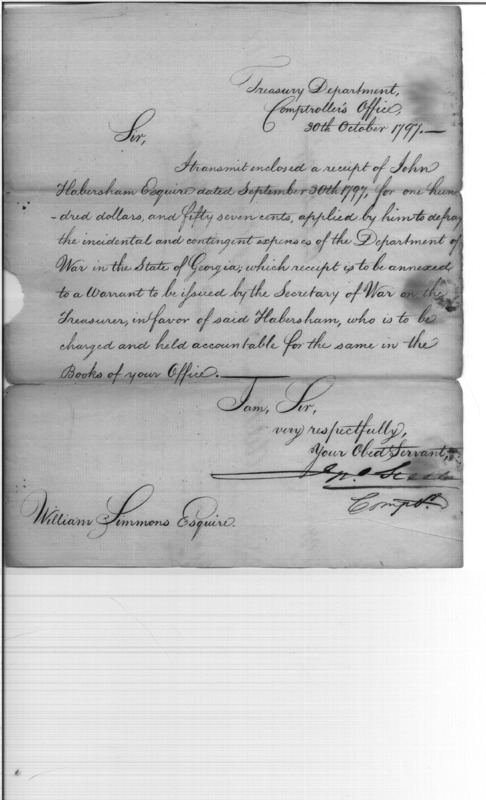 Treasury Department,
Comptroller's Office,
30th October 1797.—
Sir,
I transmit enclosed a receipt of John
Habersham Esquire dated September 30th 1797, for one hun
-dred dollars, and fifty seven cents, applied by him to defray
the incidental and contingent expenses of the Department of
War in the State of Georgia, which receipt is to be annexed
to a Warrant to be issued by the Secretary of War on the
Treasurer, in favor of said Habersham, who is to be
charged and held accountable for the same in the
Books of your Office.—
I am, Sir,
very respectfully,
Your Obed Servant,
Jno. Steele
Comptr.
William Simmons Esquire.